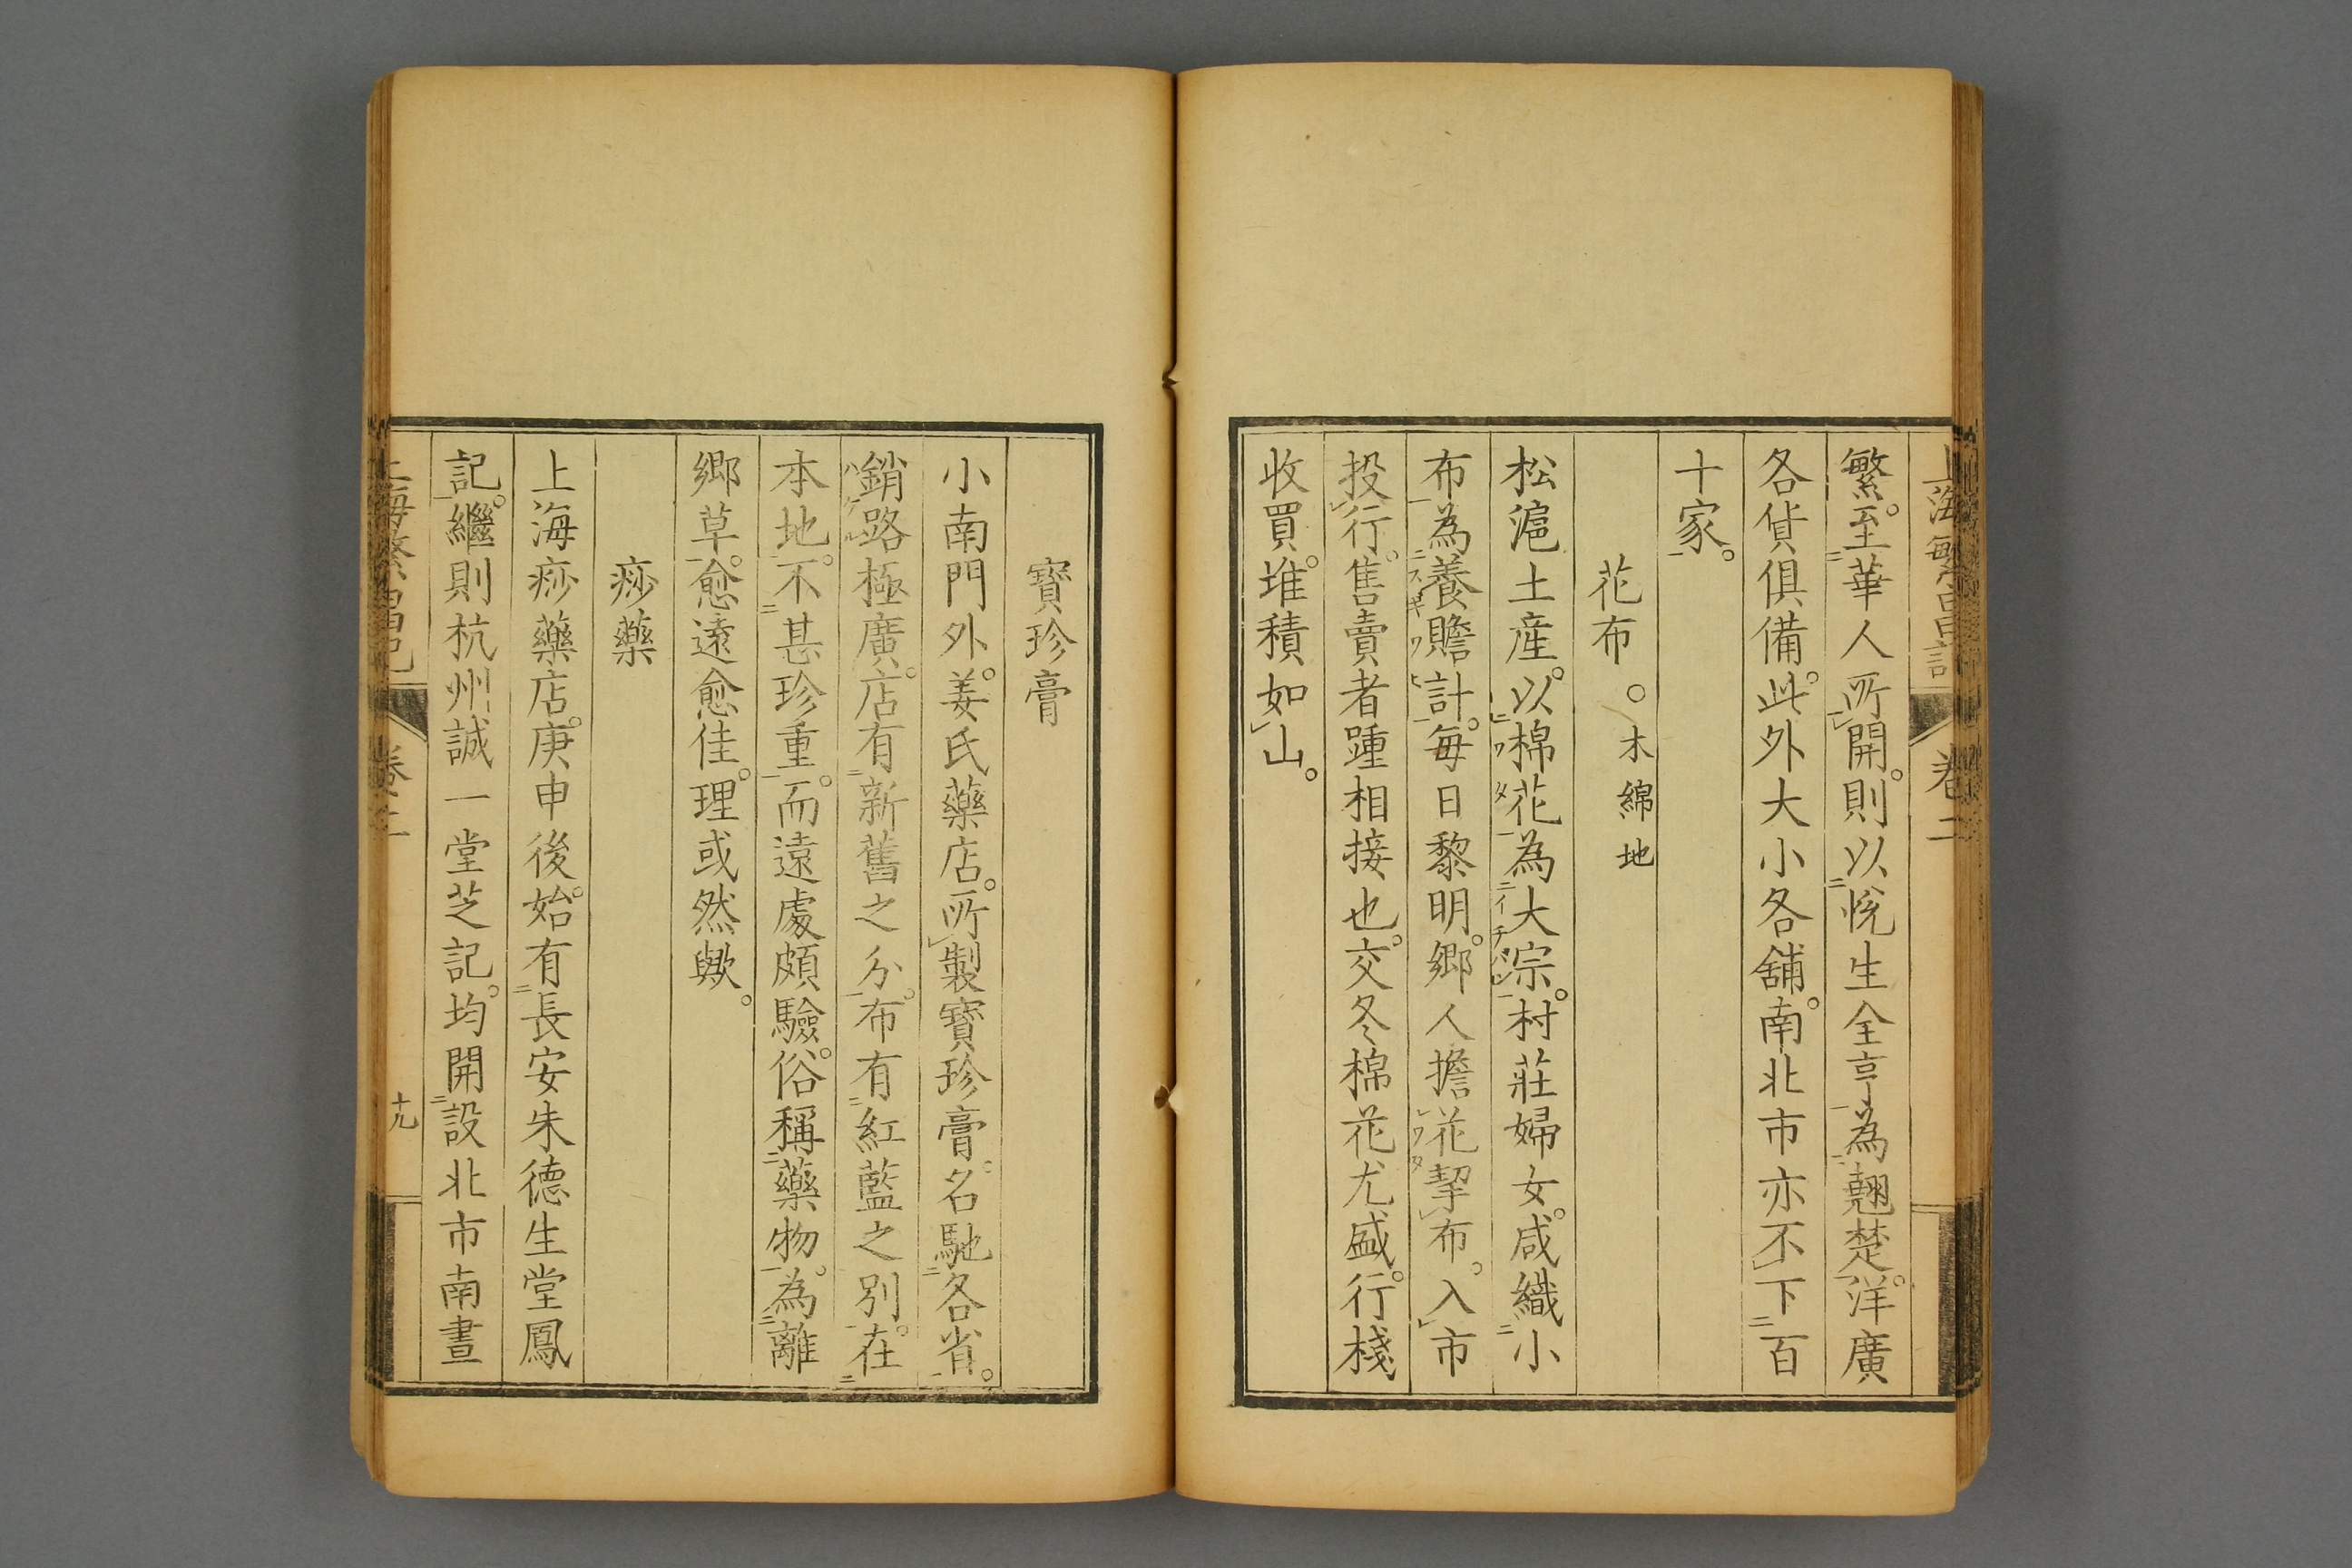 上海繁昌記 卷二
繁。至華人所開。則以悅生全亨為翹楚。洋廣
各貨俱備。此外大小各舖。南北市亦不下百
十家。
花布。木綿地
松滬土産。以棉花為大宗。村莊婦女。咸織小
布為養贍計。每日黎明。鄉人擔花挈布。入市
投行。售賣者踵相接也。交冬棉花尤盛。行棧
收買。堆積如山。
寳珍膏
小南門外。姜氏藥店。所製寳珍膏。名馳各省。
銷路極廣。店有新舊之分。布有紅藍之別。在
本地。不甚珍重。而遠處頗驗。俗稱藥物。為離
鄉草。愈遠愈佳。理或然歟。
痧藥
上海痧藥店。庚申後。始有長安朱德生堂鳳
記。繼則杭州誠一堂芝記。均開設北市南晝
上海繁昌記 卷二 十九